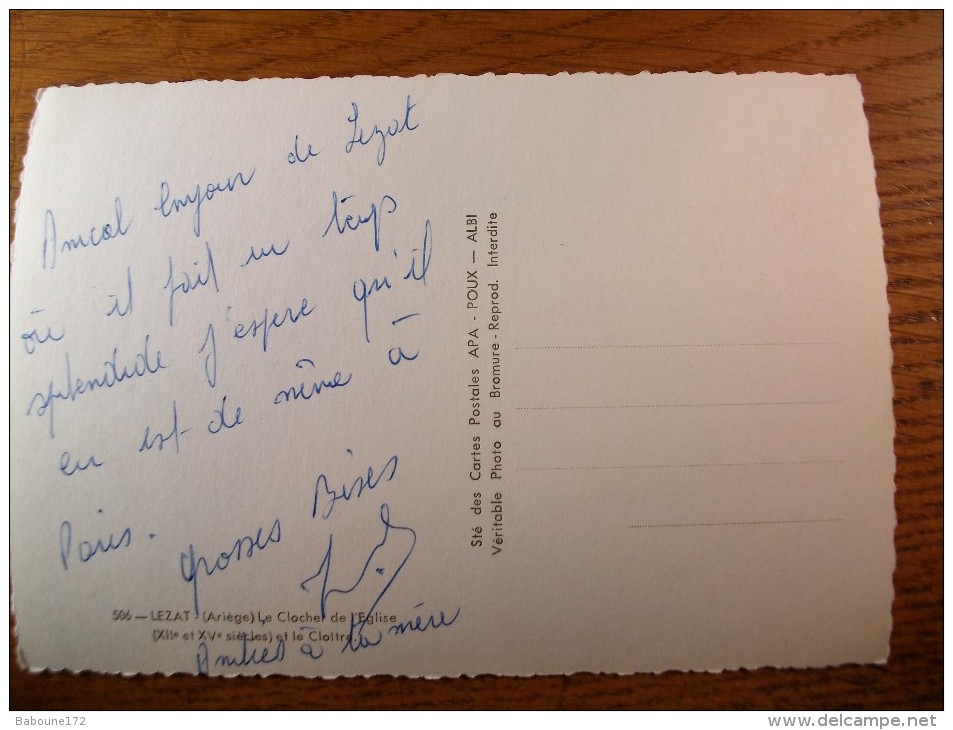 Amical bonjour de Lezat
où il fait un temps
splendide j'espere qu'il
en est de même à
Paris.
grosses Bises
506 — LEZAT - (Ariège) Le Clocher de l'Eglise
(XIIe et XVe siècles) et le Cloître.
Amitiés à ta mère
Sté des Cartes Postales APA - POUX — ALBI
Véritable Photo au Bromure - Reprod. Interdite
Baboune172
www.delcampe.net